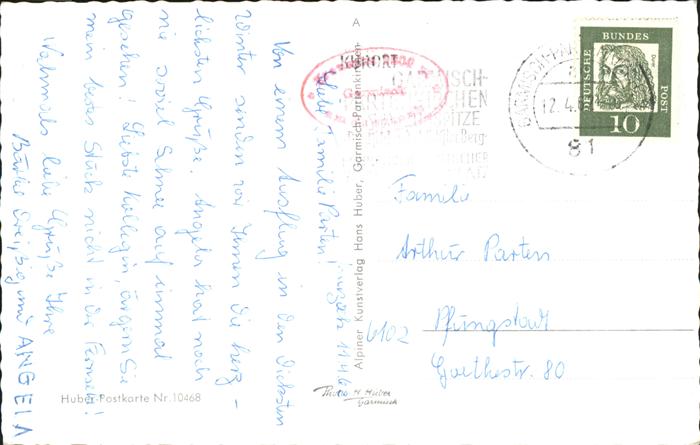 A
KURORT
GARMISCH-
PARTENKIRCHEN
DEUTSCHE BUNDESPOST
10
GARMISCH-PARTENKIRCHEN
12.4.
81
Liebe Familie Parten!
Zugspitze 11.4.6
Von einem Ausflug in den dicksten
Winter senden wir Ihnen die herz-
lichsten Grüße. Angela hat noch
nie soviel Schnee auf einmal
gesehen! Liebe Kollegin, ärgern Sie
mein bestes Stück nicht in der Ferne!
Nochmals liebe Grüße Ihre
ANGELA
Familie
Arthur Parten
6102 Pfungstadt
Goethestr. 80
Alpiner Kunstverlag Hans Huber, Garmisch-Partenkirchen
Huber-Postkarte Nr. 10468
Photo H. Huber
Garmisch